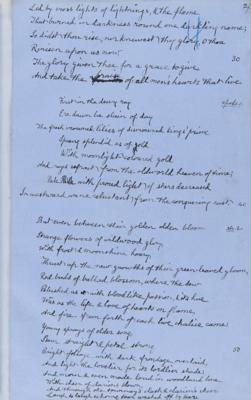 Led by most lights of lightnings, & the flame
That burned in darkness round one darkling name;
So didst thou rise, nor knewest thy glory, O thou
Risen upon us now
The glory given thee for a grace to give
And take the praise of all men's hearts that live
30
First in the dewy ray
Ere dawn be slain of day
The fresh crowned lilies of discrowned kings' prime
Sprang splendid as of old
With moonlight-coloured gold
And rays refract from the oldworld heaven of time;
Pale with proud light of stars decreased
In westward wane reluctant from the conquering east
40
But even between their golden olden bloom
Strange flowers of wildwood glory
With frost & moonshine hoary
Thrust up the new growths of their green-leaved gloom,
Red buds of ballad blossom, where the dew
Blushed as with bloodlike passion, & its hue
Was as the life & love of hearts on flame,
And fire from forth of each live chalice came:
Young sprays of elder song
Stem straight & petal strong
50
Bright foliage with dark frondage overlaid,
And light the lovelier for its lordlier shade;
And morn & even made loud in woodland lone
With cheer of clarions blown,